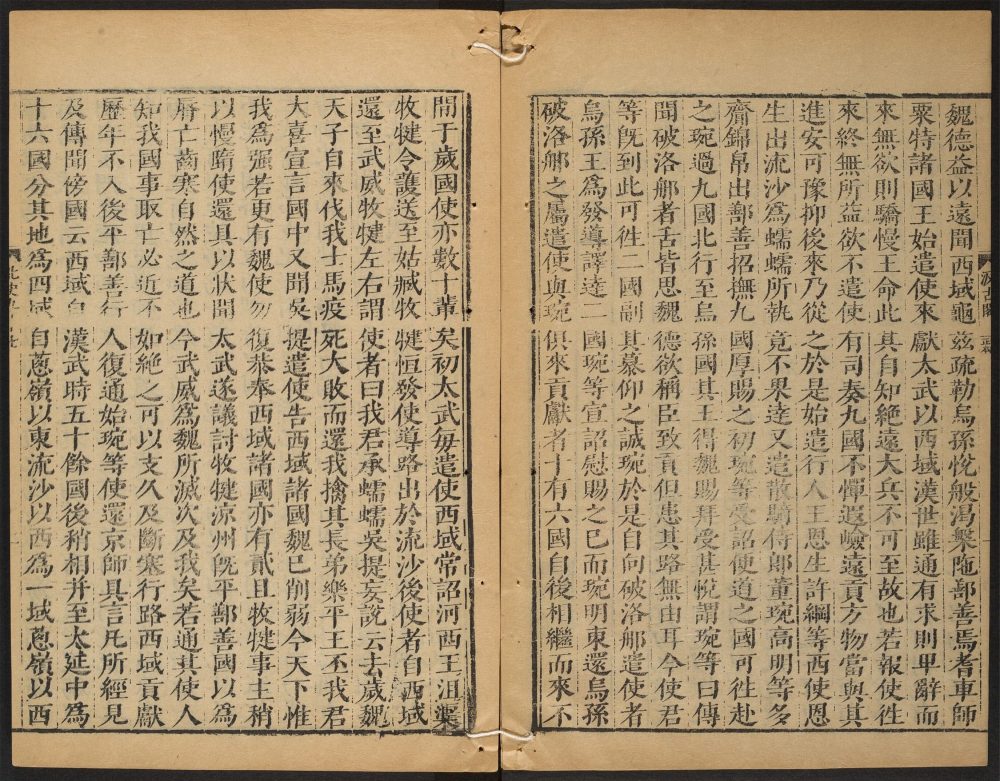 汲古閣
魏德益以遠聞西域龜茲疏勒烏孫悅般渴槃陁鄯善焉耆車師
粟特諸國王始遣使來獻太武以西域漢世雖通有求則卑辭而
來無欲則驕慢王命此其自知絕遠大兵不可至故也若報使徃
來終無所益欲不遣使有司奏九國不憚遐嶮遠貢方物當與其
進安可豫抑後來乃從之於是始遣行人王恩生許綱等西使恩
生出流沙爲蠕蠕所執竟不果達又遣散騎侍郎董琬高明等多
齎錦帛出鄯善招撫九國厚賜之初琬等受詔便道之國可徃赴
之琬過九國北行至烏孫國其王得魏賜拜受甚悅謂琬等曰傳
聞破洛那者舌皆思魏德欲稱臣致貢但患其路無由耳今使君
等旣到此可徃二國副其慕仰之誠琬於是自向破洛那遣使者
烏孫王爲發導譯達二國琬等宣詔慰賜之已而琬明東還烏孫
破洛那之屬遣使與琬俱來貢獻者十有六國自後相繼而來不
間于歲國使亦數十輩矣初太武每遣使西域常詔河西王沮渠
牧犍令護送至姑臧牧犍恒發使導路出於流沙後使者自西域
還至武威牧犍左右謂使者曰我君承蠕蠕吳提妄說云去歲魏
天子自來伐我士馬疫死大敗而還我擒其長弟樂平王丕我君
大喜宣言國中又聞吳提遣使告西域諸國魏已削弱今天下惟
我爲强若更有魏使勿復恭奉西域諸國亦有貳且牧犍事主稍
以慢隋使還具以狀聞太武遂議討牧犍凉州旣平鄯善國以爲
脣亡齒寒自然之道也今武威爲魏所滅次及我矣若通其使人
知我國事取亡必近不如絕之可以支久乃斷塞行路西域貢獻
歷年不入後平鄯善行人復通始琬等使還京師具言凡所經見
及傳聞傍國云西域自漢武時五十餘國後稍相并至太延中爲
十六國分其地爲四域自蔥嶺以東流沙以西爲一域蔥嶺以西